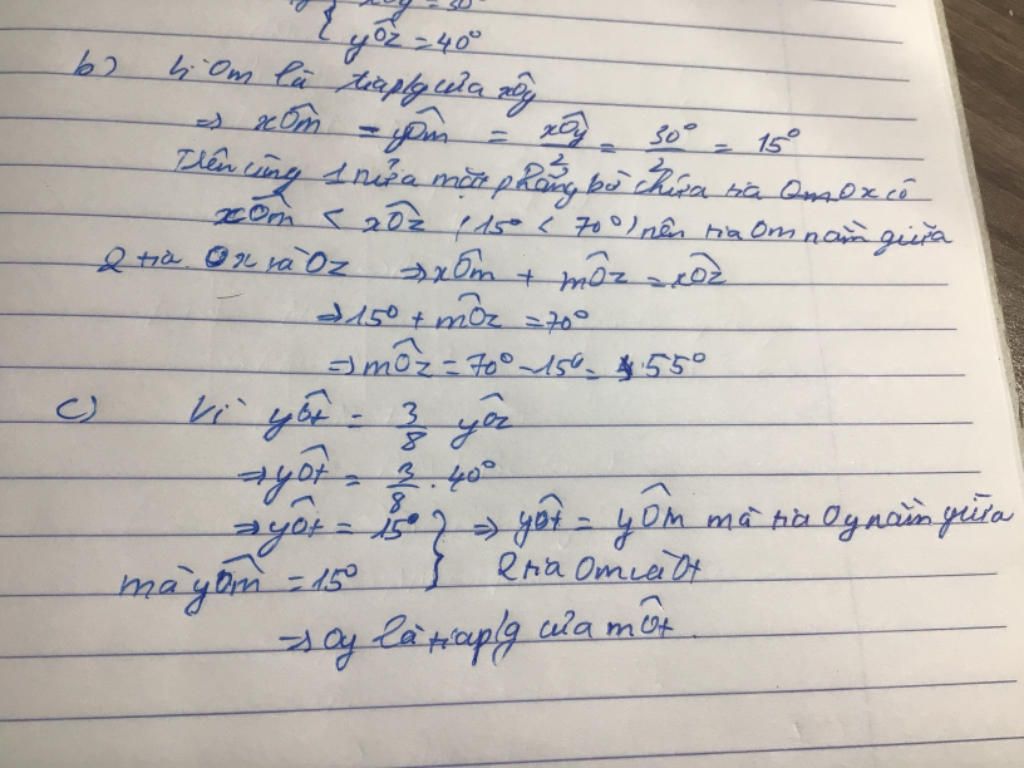 { yÔz = 40°
b) Vì Om là tia p/g của xÔy
⇒ xÔm = yÔm = xÔy/2 = 30°/2 = 15°
Trên cùng 1 nửa mặt phẳng bờ chứa tia Ox có
xÔm < xÔz (15° < 70°) nên tia Om nằm giữa
2 tia Ox và Oz ⇒ xÔm + mÔz = xÔz
⇒ 15° + mÔz = 70°
⇒ mÔz = 70° - 15° = 55°
c) Vì yÔt = 3/8 yÔz
⇒ yÔt = 3/8 . 40°
⇒ yÔt = 15° } ⇒ yÔt = yÔm mà tia Oy nằm giữa
mà yÔm = 15° } 2 tia Om và Ot
⇒ Oy là tia p/g của mÔt.